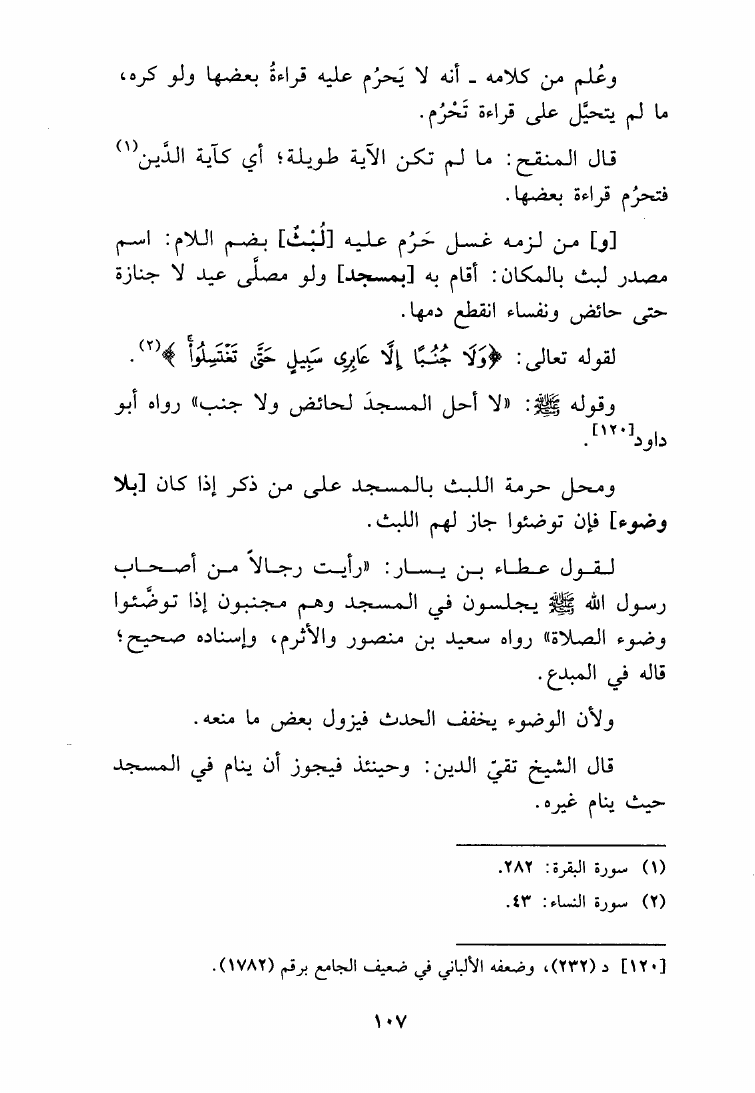 وعُلم من كلامه ـ أنه لا يَحرُم عليه قراءةُ بعضها ولو كره،
ما لم يتحيَّل على قراءة تَحْرُم.
قال المنقح: ما لم تكن الآية طويلة؛ أي كآية الدَّين(١)
فتحرُم قراءة بعضها.
[و] من لزمه غسل حَرُم عليه [لُبْثٌ] بضم اللام: اسم
مصدر لبث بالمكان: أقام به [بمسجد] ولو مصلَّى عيد لا جنازة
حتى حائض ونفساء انقطع دمها.
لقوله تعالى: ﴿وَلَا جُنُبًا إِلَّا عَابِرِى سَبِيلٍ حَتَّىٰ تَغْتَسِلُوا۟ۚ﴾(٢).
وقوله ﷺ: «لا أحل المسجدَ لحائض ولا جنب» رواه أبو
داود[١٢٠].
ومحل حرمة اللبث بالمسجد على من ذكر إذا كان [بلا
وضوء] فإن توضئوا جاز لهم اللبث.
لقول عطاء بن يسار: «رأيت رجالاً من أصحاب
رسول الله ﷺ يجلسون في المسجد وهم مجنبون إذا توضَّئوا
وضوء الصلاة» رواه سعيد بن منصور والأثرم، وإسناده صحيح؛
قاله في المبدع.
ولأن الوضوء يخفف الحدث فيزول بعض ما منعه.
قال الشيخ تقيّ الدين: وحينئذ فيجوز أن ينام في المسجد
حيث ينام غيره.
(١) سورة البقرة: ٢٨٢.
(٢) سورة النساء: ٤٣.
[١٢٠] د (٢٣٢)، وضعفه الألباني في ضعيف الجامع برقم (١٧٨٢).
١٠٧